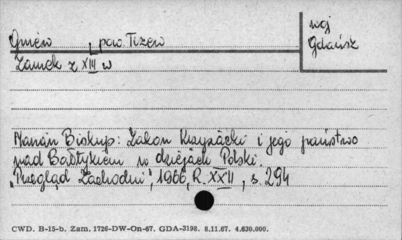 Gniew, pow. Tczew
woj
Gdańsk
Zamek z XIII w
Marian Biskup: Zakon Krzyżacki i jego państwo
nad Bałtykiem w dziejach Polski.
"Przegląd Zachodni", 1966, R. XXII, s. 294
CWD. B-15-b. Zam. 1726-DW-On-67. GDA-2198. 8.11.67. 4.630.000.